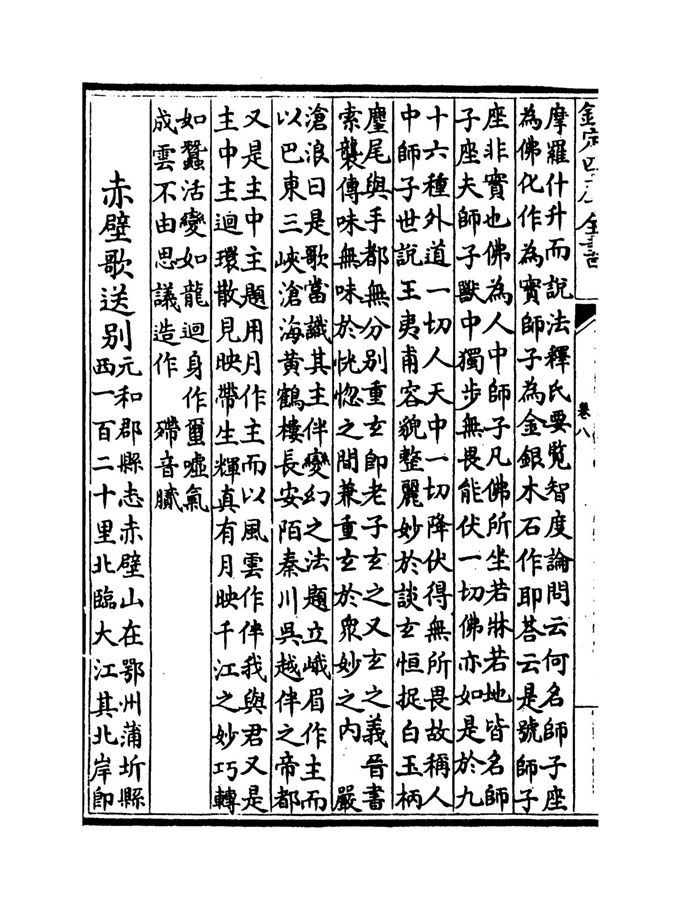 欽定四庫全書
卷八
摩羅什升而說法釋氏要覽智度論問云何名師子座
為佛化作為實師子為金銀木石作耶荅云是號師子
座非實也佛為人中師子凡佛所坐若牀若地皆名師
子座夫師子獸中獨步無畏能伏一切佛亦如是於九
十六種外道一切人天中一切降伏得無所畏故稱人
中師子世說王夷甫容貌整麗妙於談玄恒捉白玉柄
麈尾與手都無分別重玄即老子玄之又玄之義晉書
索襲傳味無味於恍惚之間兼重玄於衆妙之内 嚴
滄浪曰是歌當識其主伴變幻之法題立峨眉作主而
以巴東三峽滄海黃鶴樓長安陌秦川吳越伴之帝都
又是主中主題用月作主而以風雲作伴我與君又是
主中主迴環散見映帶生輝真有月映千江之妙巧轉
如蠶活變如龍迴身作璽噓氣
成雲不由思議造作 殢音膩
赤壁歌送別
元和郡縣志赤壁山在鄂州蒲圻縣
西一百二十里北臨大江其北岸即